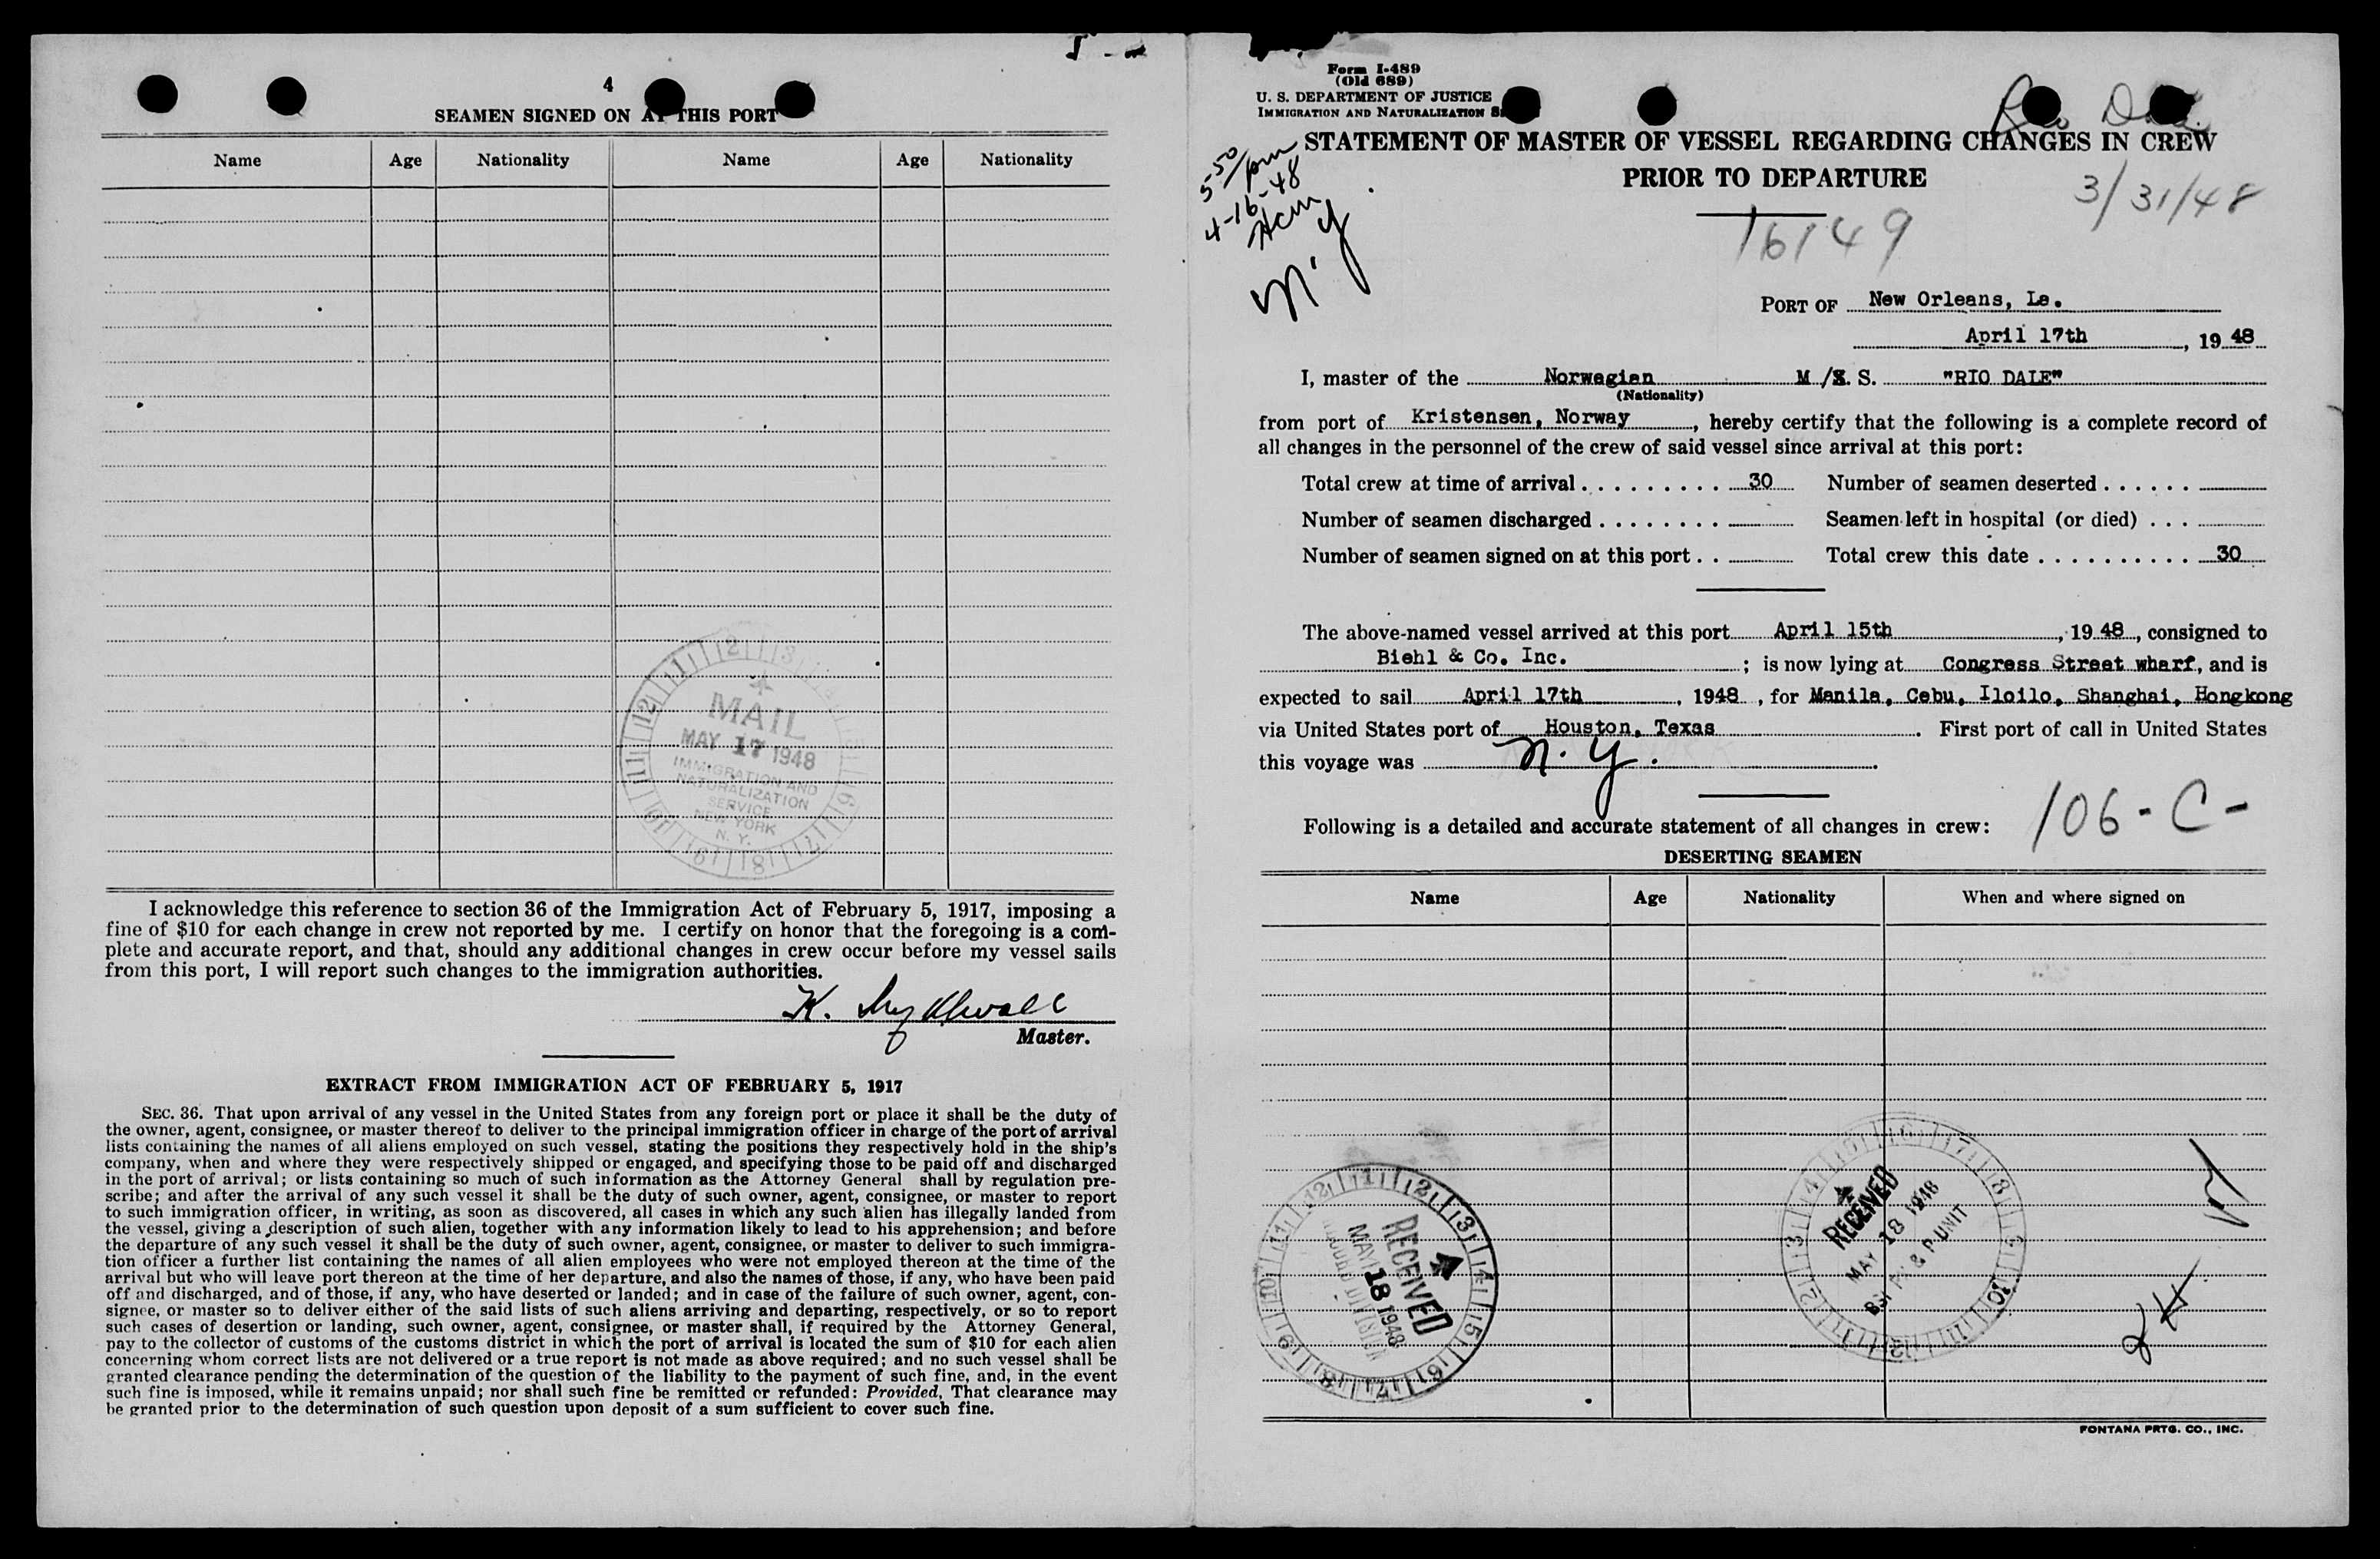 4
SEAMEN SIGNED ON AT THIS PORT
Name Age Nationality Name Age Nationality
MAIL
MAY 17 1948
IMMIGRATION AND
NATURALIZATION
SERVICE
NEW YORK
N. Y.
I acknowledge this reference to section 36 of the Immigration Act of February 5, 1917, imposing a
fine of $10 for each change in crew not reported by me. I certify on honor that the foregoing is a com-
plete and accurate report, and that, should any additional changes in crew occur before my vessel sails
from this port, I will report such changes to the immigration authorities.
K.
Master.
EXTRACT FROM IMMIGRATION ACT OF FEBRUARY 5, 1917
SEC. 36. That upon arrival of any vessel in the United States from any foreign port or place it shall be the duty of
the owner, agent, consignee, or master thereof to deliver to the principal immigration officer in charge of the port of arrival
lists containing the names of all aliens employed on such vessel, stating the positions they respectively hold in the ship's
company, when and where they were respectively shipped or engaged, and specifying those to be paid off and discharged
in the port of arrival; or lists containing so much of such information as the Attorney General shall by regulation pre-
scribe; and after the arrival of any such vessel it shall be the duty of such owner, agent, consignee, or master to report
to such immigration officer, in writing, as soon as discovered, all cases in which any such alien has illegally landed from
the vessel, giving a description of such alien, together with any information likely to lead to his apprehension; and before
the departure of any such vessel it shall be the duty of such owner, agent, consignee, or master to deliver to such immigra-
tion officer a further list containing the names of all alien employees who were not employed thereon at the time of the
arrival but who will leave port thereon at the time of her departure, and also the names of those, if any, who have been paid
off and discharged, and of those, if any, who have deserted or landed; and in case of the failure of such owner, agent, con-
signee, or master so to deliver either of the said lists of such aliens arriving and departing, respectively, or so to report
such cases of desertion or landing, such owner, agent, consignee, or master shall, if required by the Attorney General,
pay to the collector of customs of the customs district in which the port of arrival is located the sum of $10 for each alien
concerning whom correct lists are not delivered or a true report is not made as above required; and no such vessel shall be
granted clearance pending the determination of the question of the liability to the payment of such fine, and, in the event
such fine is imposed, while it remains unpaid; nor shall such fine be remitted or refunded: Provided, That clearance may
be granted prior to the determination of such question upon deposit of a sum sufficient to cover such fine.
Form I-489
(Old 689)
U. S. DEPARTMENT OF JUSTICE
IMMIGRATION AND NATURALIZATION
Rio Dale
STATEMENT OF MASTER OF VESSEL REGARDING CHANGES IN CREW
PRIOR TO DEPARTURE
3/31/48
5 50/pm
4-16-48
N.Y
16149
PORT OF New Orleans, La.
April 17th, 19 48
I, master of the Norwegian M /S. S. "RIO DALE"
(Nationality)
from port of Kristensen, Norway, hereby certify that the following is a complete record of
all changes in the personnel of the crew of said vessel since arrival at this port:
Total crew at time of arrival . . . . . . . . . 30 Number of seamen deserted . . . . . .
Number of seamen discharged . . . . . . . . Seamen left in hospital (or died) . . .
Number of seamen signed on at this port . . Total crew this date . . . . . . . . . . 30
The above-named vessel arrived at this port April 15th, 19 48, consigned to
Biehl & Co. Inc. ; is now lying at Congress Street wharf, and is
expected to sail April 17th, 1948, for Manila, Cebu, Iloilo, Shanghai, Hongkong
via United States port of Houston, Texas. First port of call in United States
this voyage was N. Y.
Following is a detailed and accurate statement of all changes in crew: 106-C-
DESERTING SEAMEN
Name Age Nationality When and where signed on
RECEIVED
MAY 18 1948
DIVISION
RECEIVED
MAY 18 1948
& P UNIT
FONTANA PRTG. CO., INC.